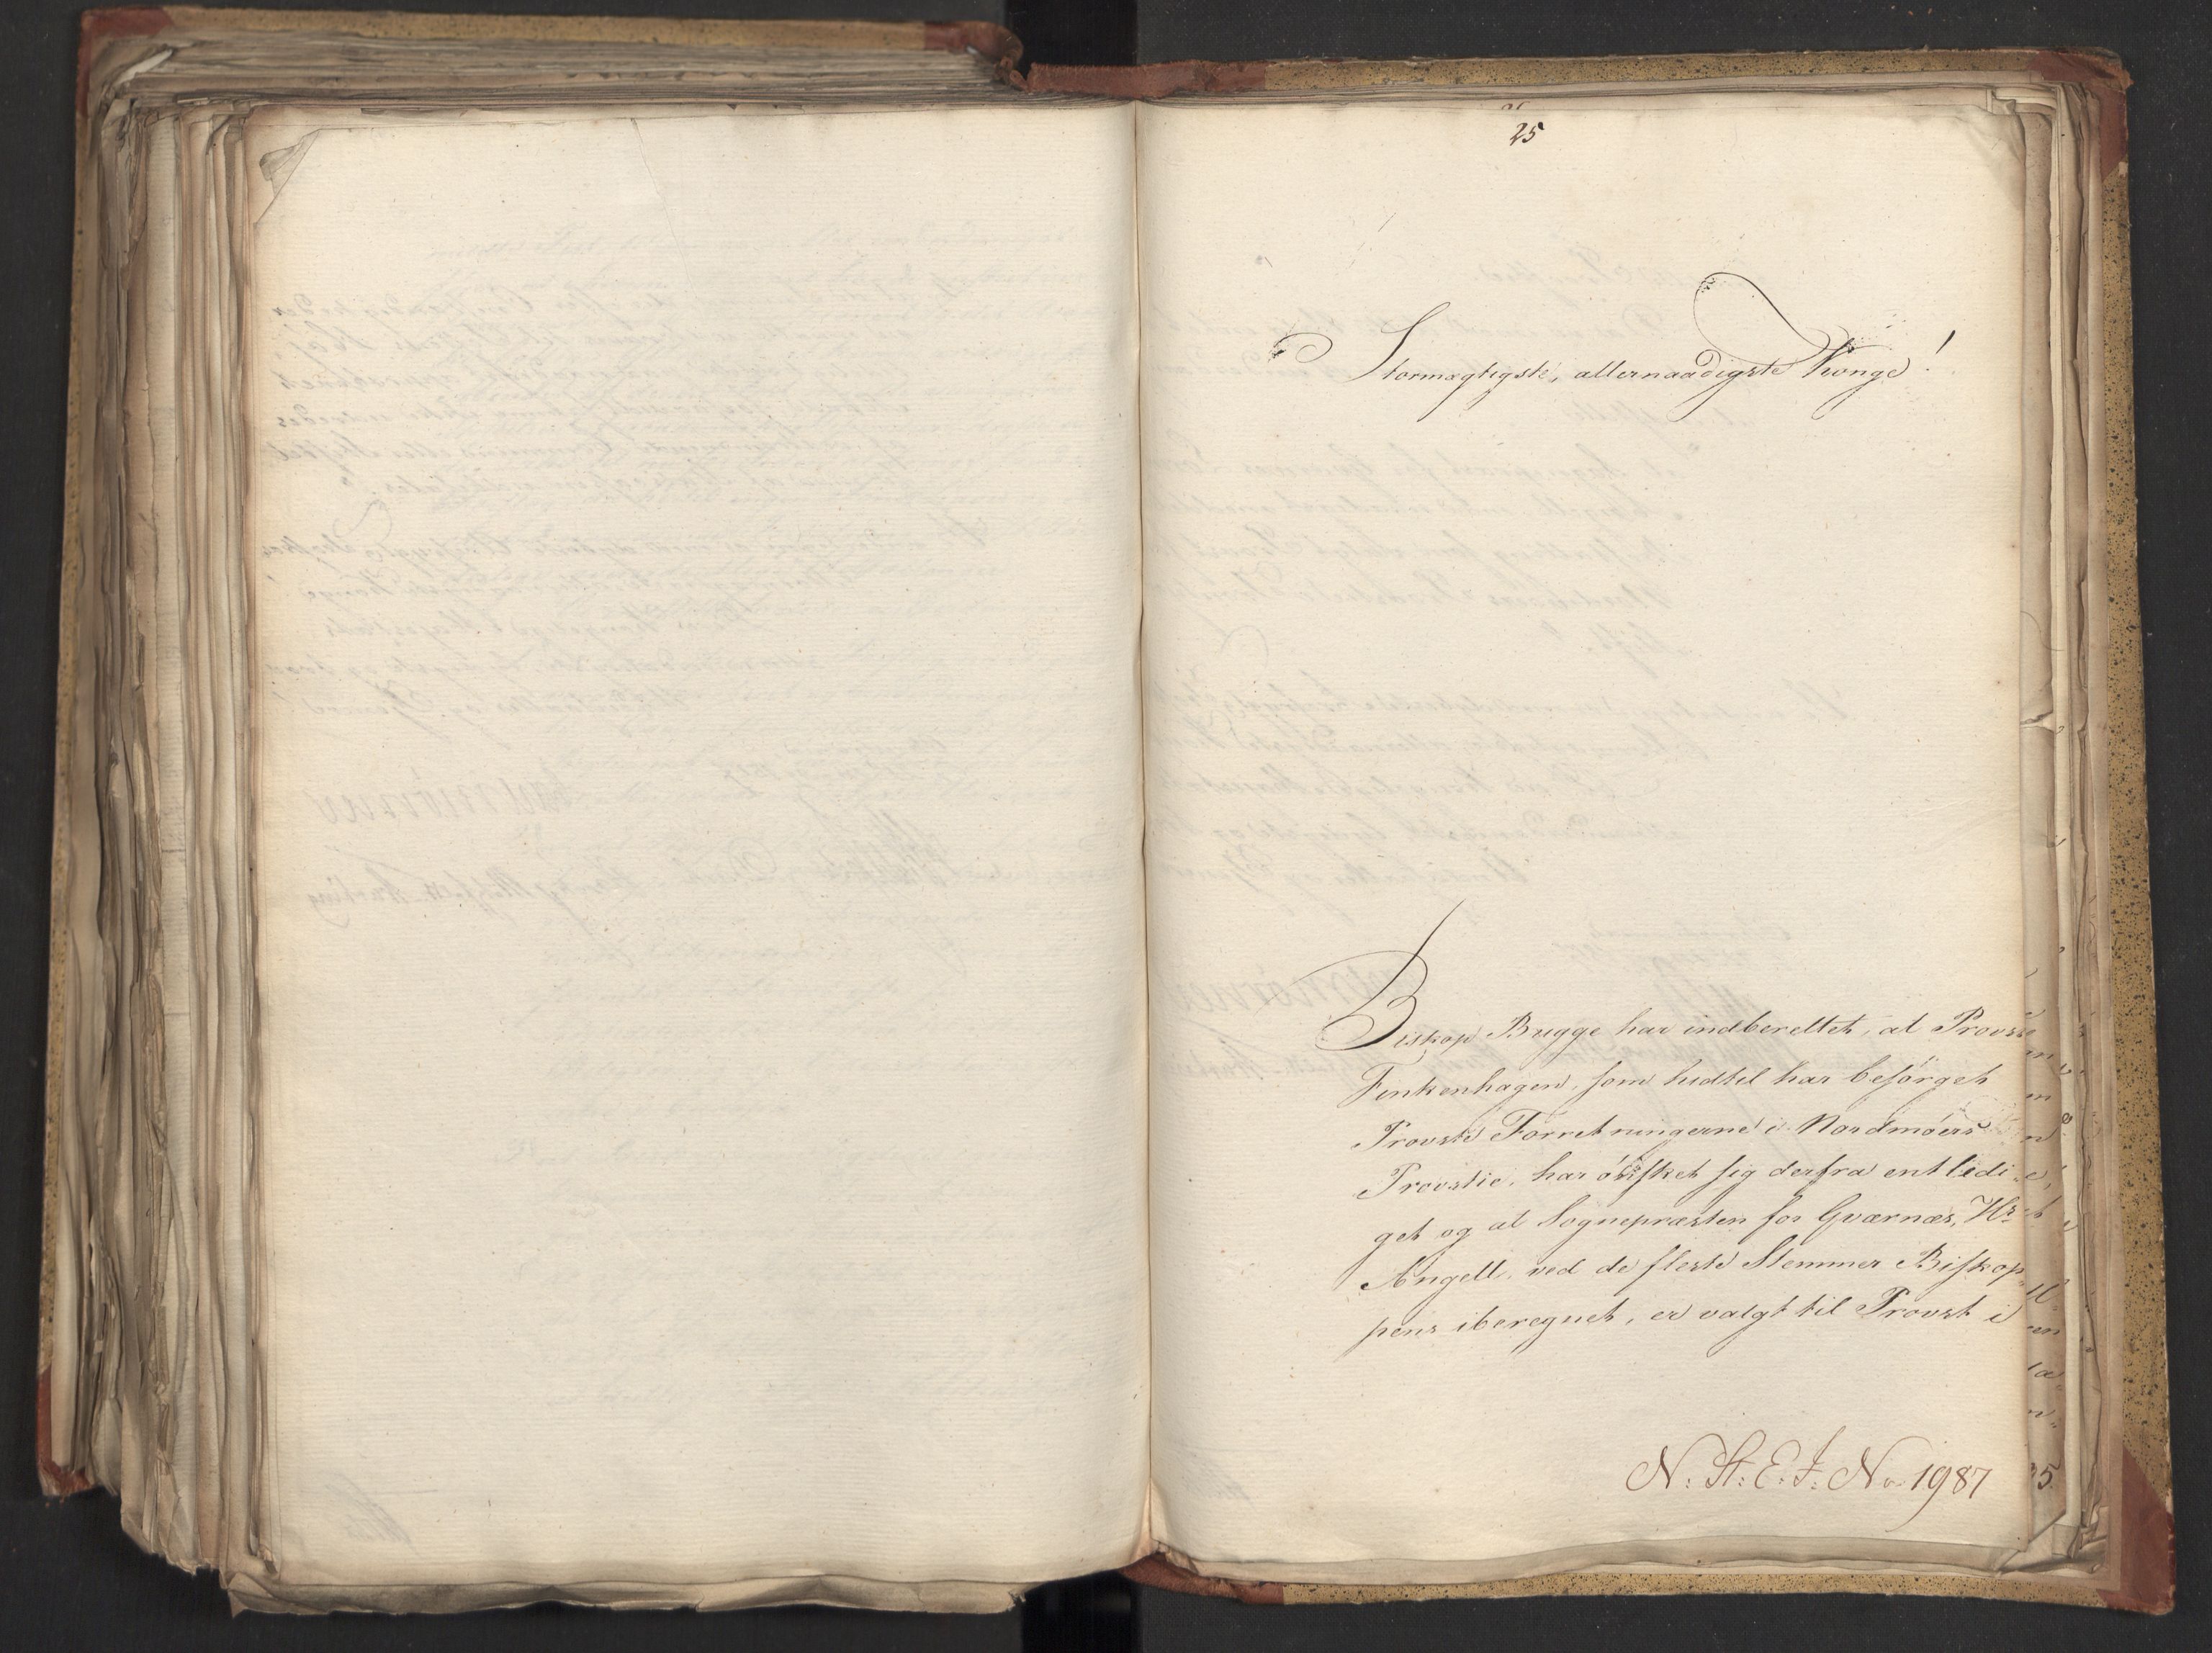 25
Stormægtigste, allernaadigste Konge!
Biskop Bugge har indberettet, at Provst
Finkenhagen, som hidtil har besörget
Provste Forretningerne i Nordmöers
Provstie, har önsket sig derfra entledi-
get og at Sognepræsten for Qværnæs, Hr
Angell, ved de fleste Stemmer Biskop-
pens iberegnet, er valgt til Provst i
N: St: E: J: No 1987